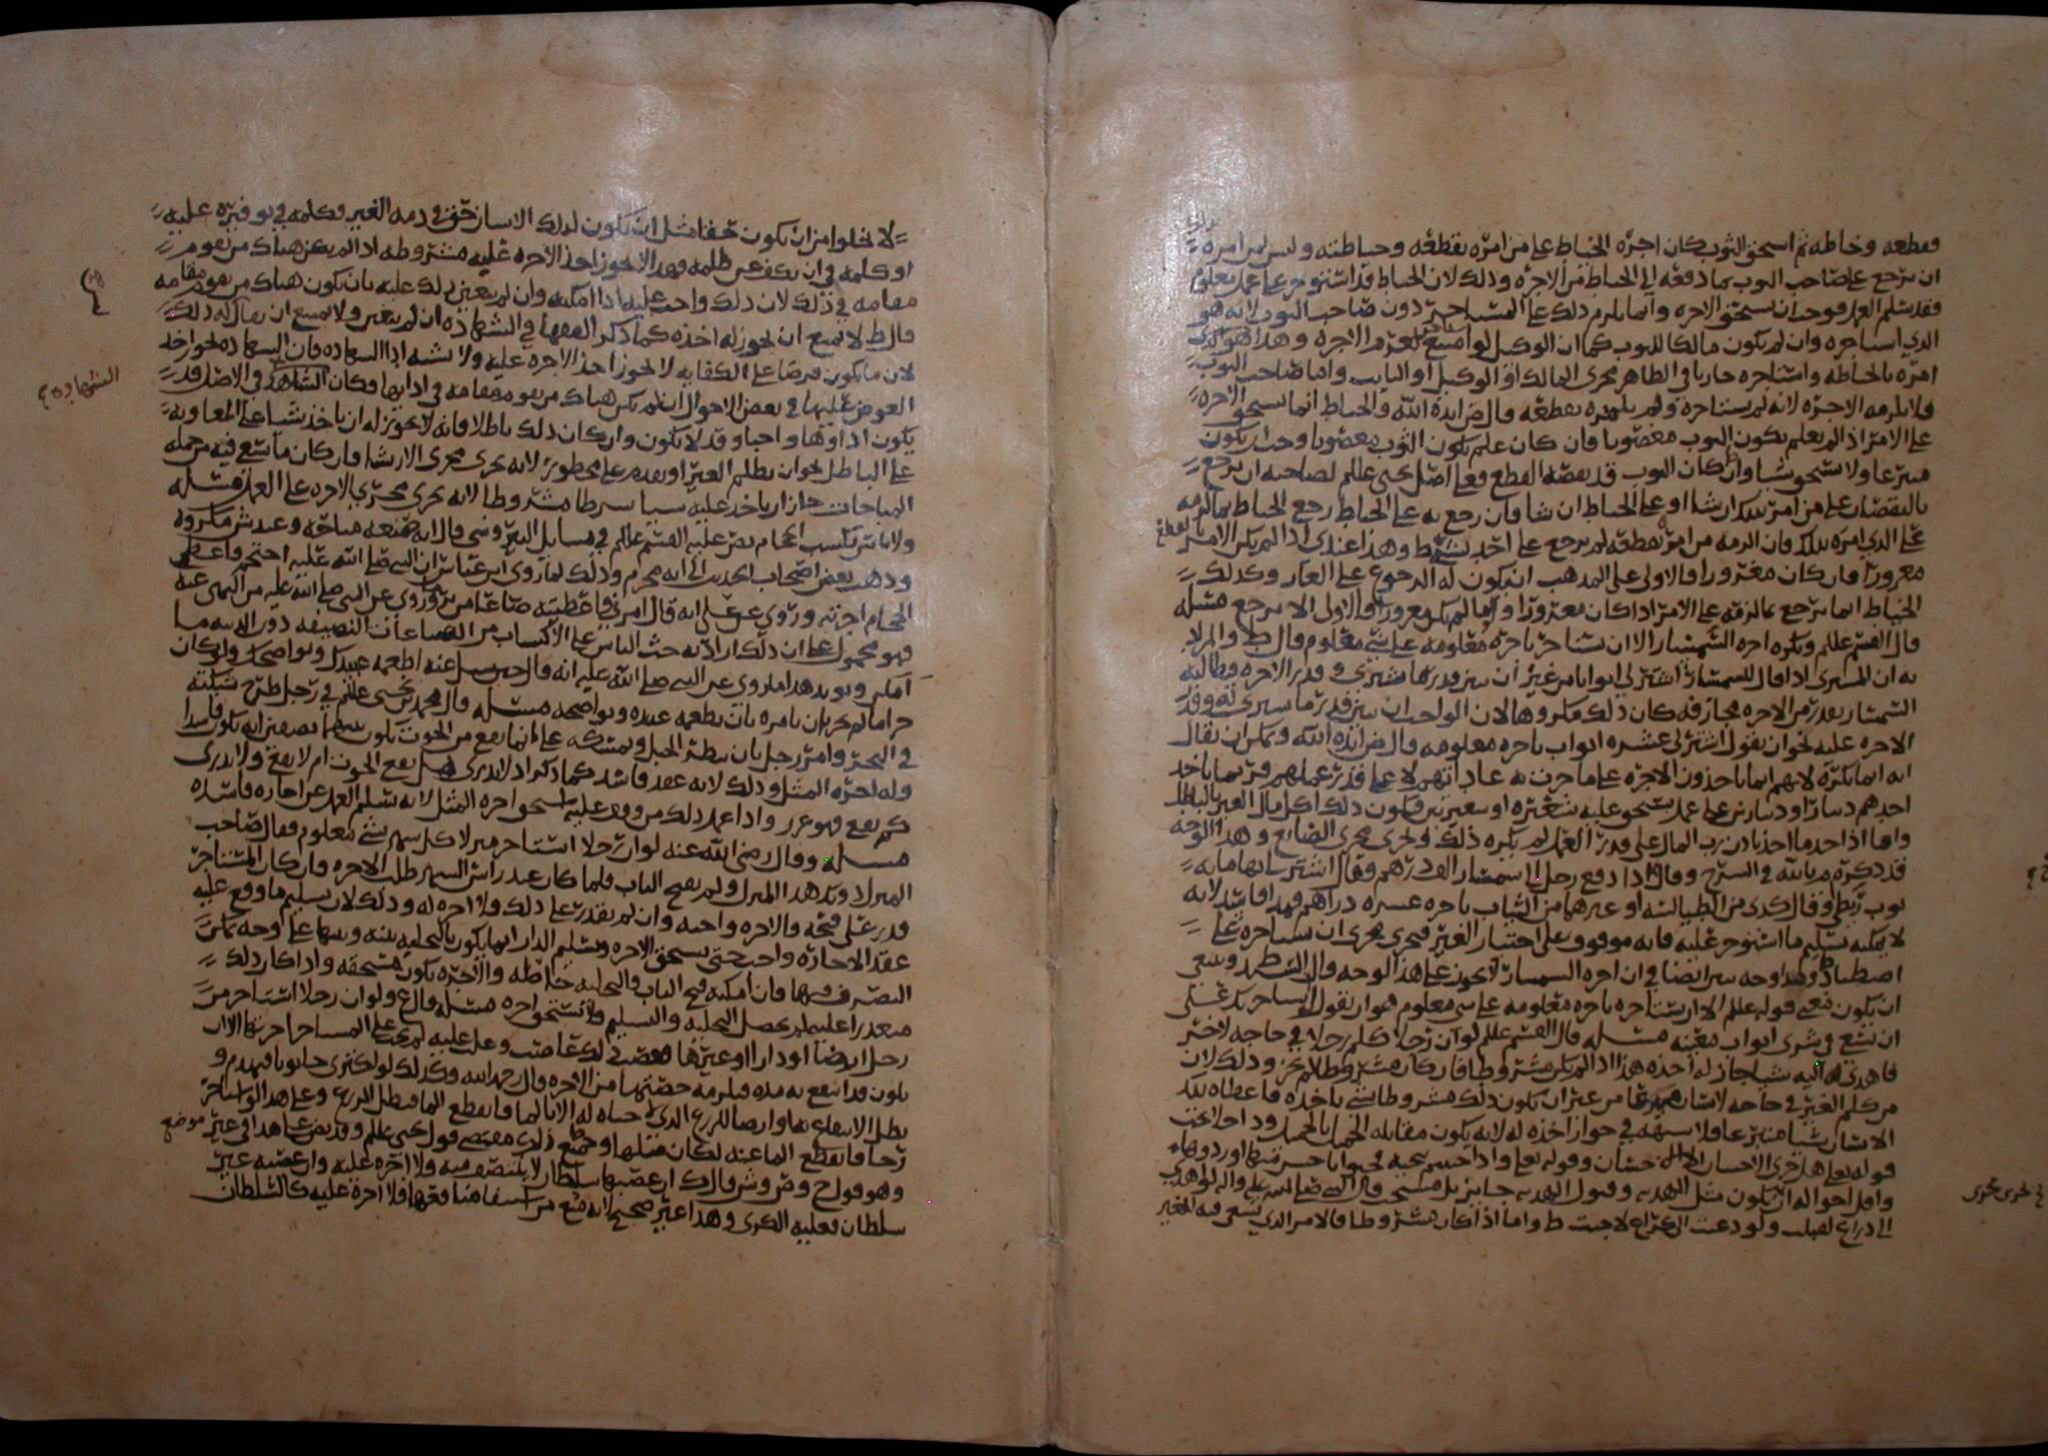 فقطعه وخاطه ثم استحق الثوب كان اجره الخياط على من امره بقطعه وخياطته وليس لمن امره
ان يرجع على صاحب الثوب بما دفعه الى الخياط من الاجره وذلك لان الخياط قد استوجر على عمل معلوم
فقد سلم العمل فوجب ان يستحق الاجره وانما يلزم ذلك على المستاجر دون صاحب الثوب لانه هو
الذي استاجره وان لم يكون مالكا للثوب كما ان الوكيل لو امتنع لغرم الاجره وهذا هو الذي
امره بالخياطه واستاجره جاريا في الظاهر مجرى المالك او الوكيل او النايب واما صاحب الثوب
فلا يلزمه الاجره لانه لم يستاجره ولم يامره بقطعه قال ايده الله والخياط انما يستحق الاجره
على الامر اذا لم يعلم بكون الثوب مغصوبا فان كان علم بكون الثوب مغصوبا وجب ان يكون
متبرعا ولا يستحق شيا وان كان الثوب قد نقصه القطع فعلى اصل يحيى علم لصاحبه ان يرجع
بالنقصان على من امر بذلك ان شا او على الخياط ان شا فان رجع به على الخياط رجع الخياط بما لزمه
على الذي امره بذلك فان الزمه من امر بقطعه لم يرجع على احد بشي ط وهذا عندي اذا لم يكن الامر
مغرورا فان كان مغرورا فالاولى على المذهب ان يكون له الرجوع على الغار وكذلك
الخياط انما يرجع بما لزمه على الامر اذا كان مغرورا واما لم يكن مغرورا فالاولى الا يرجع مسئله
قال القسم علم ويكره اجره السمسار الا ان يستاجر باجره معلومه على شي معلوم قال ط والمراد
به ان المشتري اذا قال للسمسار اشتر لي اثوابا من غير ان يبين قدر ما يشترى وقدر الاجره فطالبه
السمسار بقدر من الاجره مجازفه كان ذلك مكروها لان الواجب ان يبين قدر ما يشترى له وقدر
الاجره عليه نحو ان يقول اشتر لي عشره اثواب باجره معلومه قال ايده الله ويمكن ان يقال
انه انما يكره لانهم انما ياخذون الاجره على ما جرت به عاداتهم لا على قدر عملهم فربما ياخذ
احدهم دينارا ودينارين على عمل يستحق عليه شعيره او شعيرتين فيكون ذلك اكل مال الغير بالباطل
واما اذا احد ما اخذ باذن رب المال على قدر العمل لم يكره ذلك وجرى مجرى الصانع وهذا الوجه
قد ذكره م بالله في الشرح وقال اذا دفع رجل الى سمسار الف درهم وقال اشتر لي بها مايه
ثوب زطي وقال كذى من الطيالسه او غيرهما من الثياب باجره عشره دراهم فهذا فاسد لانه
لا يمكنه تسليم ما استوجر عليه فانه موقوف على اختيار الغير فيجري مجرى ان يستاجره على
اصطياد وهذا وجه بين ايضا في ان اجره السمسار لا يجوز على هذا الوجه قال الشيخ ط وينبغي
ان يكون معنى قوله علم الا ان يستاجره باجره معلومه على شي معلوم هو ان يقول استاجرتك على
ان تسعى في شرى اثواب معينه مسئله قال القسم علم لو ان رجلا كلم رجلا في حاجه لاخر
فاهدى له اليه شيا جاز له اخذه هذا اذا لم يكن مشروطا فان كان مشروطا لم يجز وذلك لان
من كلم الغير في حاجه لانسان من غير ان يكون ذلك مشروطا بشي ياخذه فاعطاه ذلك
الانسان شيا متبرعا فلا شبهه في جواز اخذه له لانه يكون مقابله الجميل بالجميل وداخلا تحت
قوله تعلى هل جزى الاحسان الا الاحسان وقوله تعلى واذا حييتم بتحيه فحيوا باحسن منها او ردوها
واقل احواله ان يكون مثل الهديه وقبول الهديه جايز بل مستحب قال النبي صلى الله عليه واله لو اهدي
الي ذراع لقبلت ولو دعيت الى كراع لاجبت ط واما اذا كان مشروطا فالامر الذي يسعى فيه للغير
في نحوى مجرى
لا يخلوا من ان يكون حقا مثل ان يكون لذلك الانسان حق في ذمه الغير فكلمه في توفيره عليه
او كلمه في ان يكف عن ظلمه فهذا لا يجوز اخذ الاجره عليه مشروطه اذا لم يكن هناك من يقوم
مقامه في ذلك لان ذلك واجب عليه اذا امكنه وان لم يتعين ذلك عليه بان يكون هناك من يقوم مقامه
قال ط لا يمتنع ان يجوز له اخذه كما ذكر الفقها في الشهاده ان لم يتعين ولا يمتنع ان يقال له ذلك
لان ما يكون فرضا على الكفايه لا يجوز اخذ الاجره عليه ولا يشبه اذا الشهاده فان الشهاده يجوز اخذ
العوض عليها في بعض الاحوال ان لم يكن هناك من يقوم مقامه في ادايها فكان الشاهد في الاصل قد
يكون اداوها واجبا وقد لا يكون وان كان ذلك باطلا فانه لا يجوز له ان ياخذ شيا على المعاونه
على الباطل نحو ان يظلم الغير او يقدم على محظور لانه يجري مجرى الارشا فان كان ما يسعى فيه من جمله
المباحات جاز ان ياخذ عليه شيا شرطا مشروطا لانه يجري مجرى الاجره على العمل مسئله
ولا باس بكسب الحجام نص عليه القسم علم في مسايل النيروسي قال انه منفعه مباحه وعند ش مكروه
وذهب بعض اصحاب الحديث الى انه محرم وذلك لما روى ابن عباس ان النبي صلى الله عليه احتجم واعطى
الحجام اجرته وروي عن علي انه قال امرني فاعطيته صاعا من تمر وروي عن النبي صلى الله عليه من النهي عنه
فهو محمول على ان ذلك اراد به حث الناس على الاكتساب من الصناعات النظيفه دون الدنيه ما
امكن ويويد هذا ما روي عن النبي صلى الله عليه انه قال حين سيل عنه اطعمه عبيدك ونواضحك ولو كان
حراما لم يجز ان يامره بان يطعمه عبيده ونواضحه مسئله قال محمد بن يحيى علم في رجل طرح شبكته
في البحر وامر رجل بان ينظر الحبل ويمسكه على انما يقع من الحوت يكون بينهما نصفين انه يكون فاسدا
وله اجره المثل وذلك لانه عقد فاسد كما ذكر اذ لا يدرى هل يقع الحوت ام لا يقع ولا يدرى
كم يقع فهو غرر واذا عمل ذلك من ووجر عليه استحق اجره المثل لانه سلم العمل عن اجاره فاسده
مسئله وقال رضي الله عنه لو ان رجلا استاجر منزلا كل شهر بشي معلوم فقال صاحب
المنزل دونك هذا المنزل ولم يفتح الباب فلما كان عند راس الشهر طلب الاجره فان كان المستاجر
قدر على فتحه فالاجره واجبه وان لم يقدر على ذلك فلا اجره له وذلك لان تسليم ما وقع عليه
عقد الاجاره واجب حتى يستحق الاجره وتسليم الدار انما يكون بالتخليه بينه وبينها على وجه يمكن
التصرف فيها فان امكنه فتح الباب فالتخليه حاصله والاجره تكون مستحقه واذا كان ذلك
متعذرا عليه لم يحصل التخليه والتسليم فلا تستحق اجره مسئله قال ع ولو ان رجلا استاجر من
رجل ارضا او دارا او غيرها فغصبت لك غاصب وغلب عليه لم يجب على المستاجر اجرتها الا ان
يكون قد انتفع به مده فيلزمه حصتها من الاجره قال رحمه الله وكذلك لو اكترى حانوتا فيهدم و
بطل الانتفاع بها وارضا للزرع الذي لا حياه له الا بالما فانقطع الما فبطل الزرع وعلى هذا لو استاجر
رحا فانقطع الما عنه لكان مثلها وجميع ذلك مقتضى قول يحيى علم وقد نص على هذا في غير موضع
وهو قول ح وص وش قال ك ان غصبها سلطان لا ينتصف منه فلا اجره عليه وان غصبه غير
سلطان فعليه الكرى وهذا غير صحيح لانه منع من استيفا منافعها فلا اجره عليه كالسلطان
الشهاده